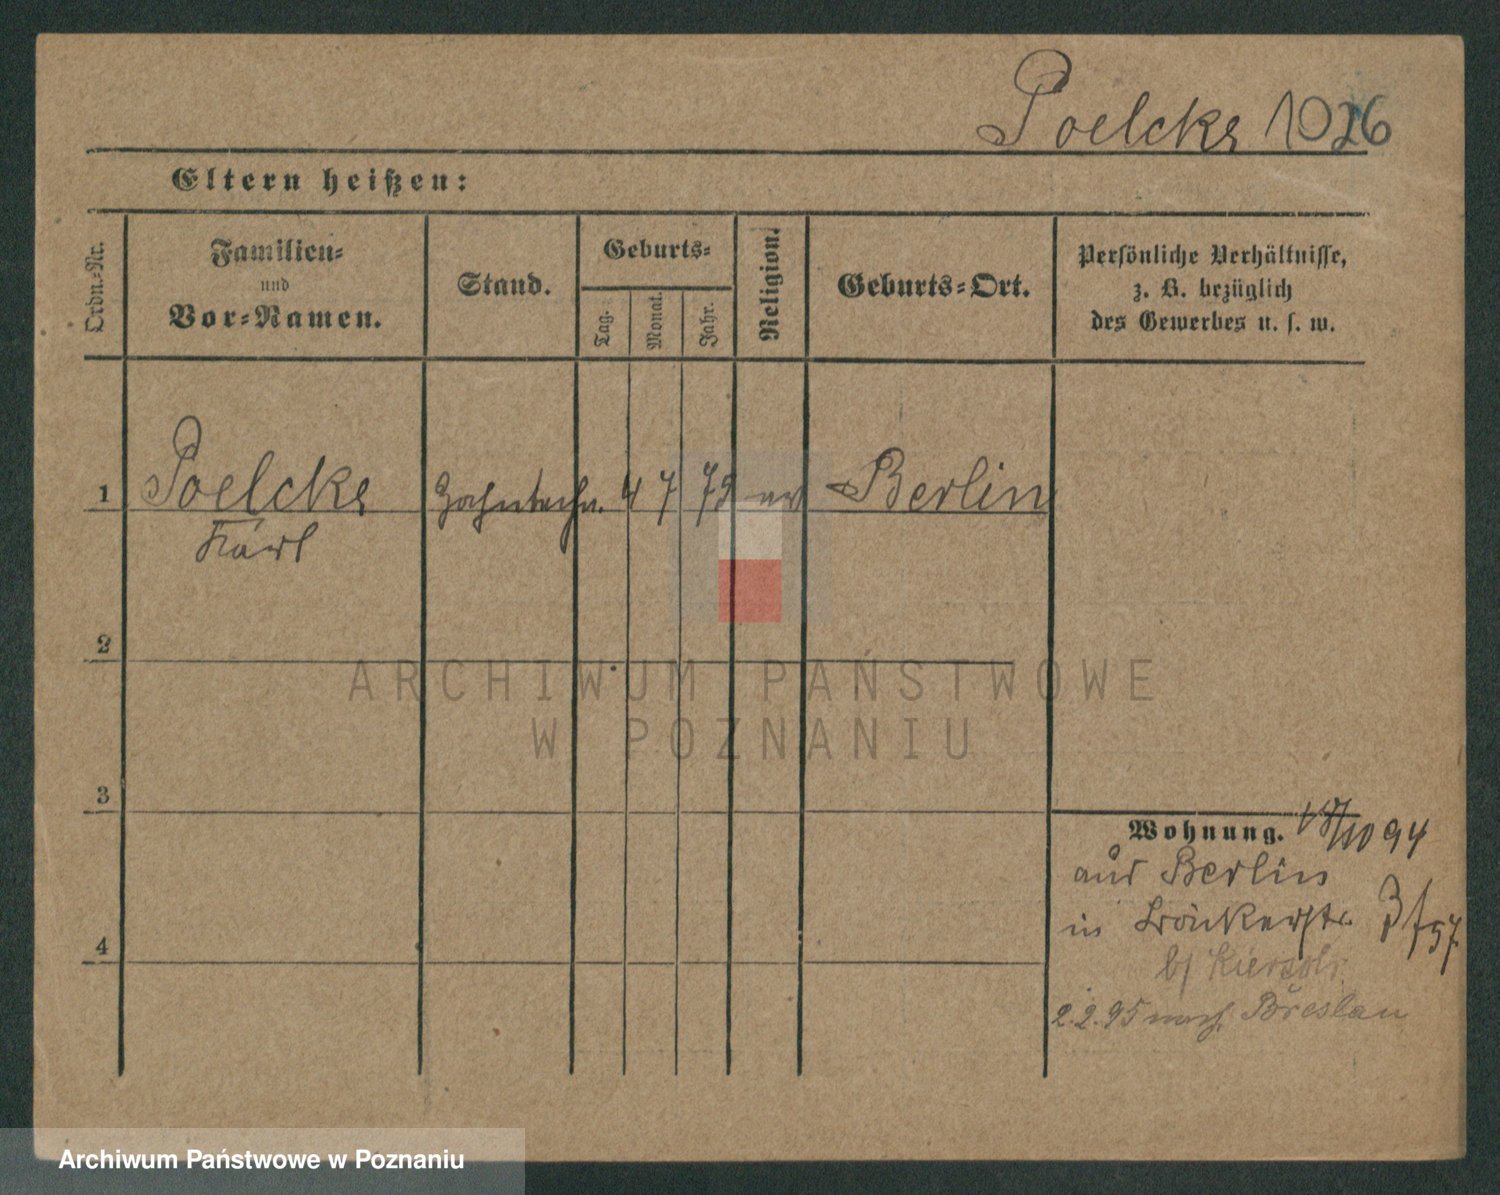 Poelcke 1026
Eltern heißen:
Ordn.-Nr.
Familien-
und
Vor-Namen.
Stand.
Geburts-
Tag.
Monat.
Jahr.
Religion.
Geburts-Ort.
Persönliche Verhältnisse,
z. B. bezüglich
des Gewerbes u. s. w.
1 Poelcke Zahntechn. 4 7 72 ev Berlin
Karl
2
3
4
Wohnung. 18/10 94
aus Berlin
in
b/
2.2.95 nach Breslau
ARCHIWUM PAŃSTWOWE
W POZNANIU
Archiwum Państwowe w Poznaniu